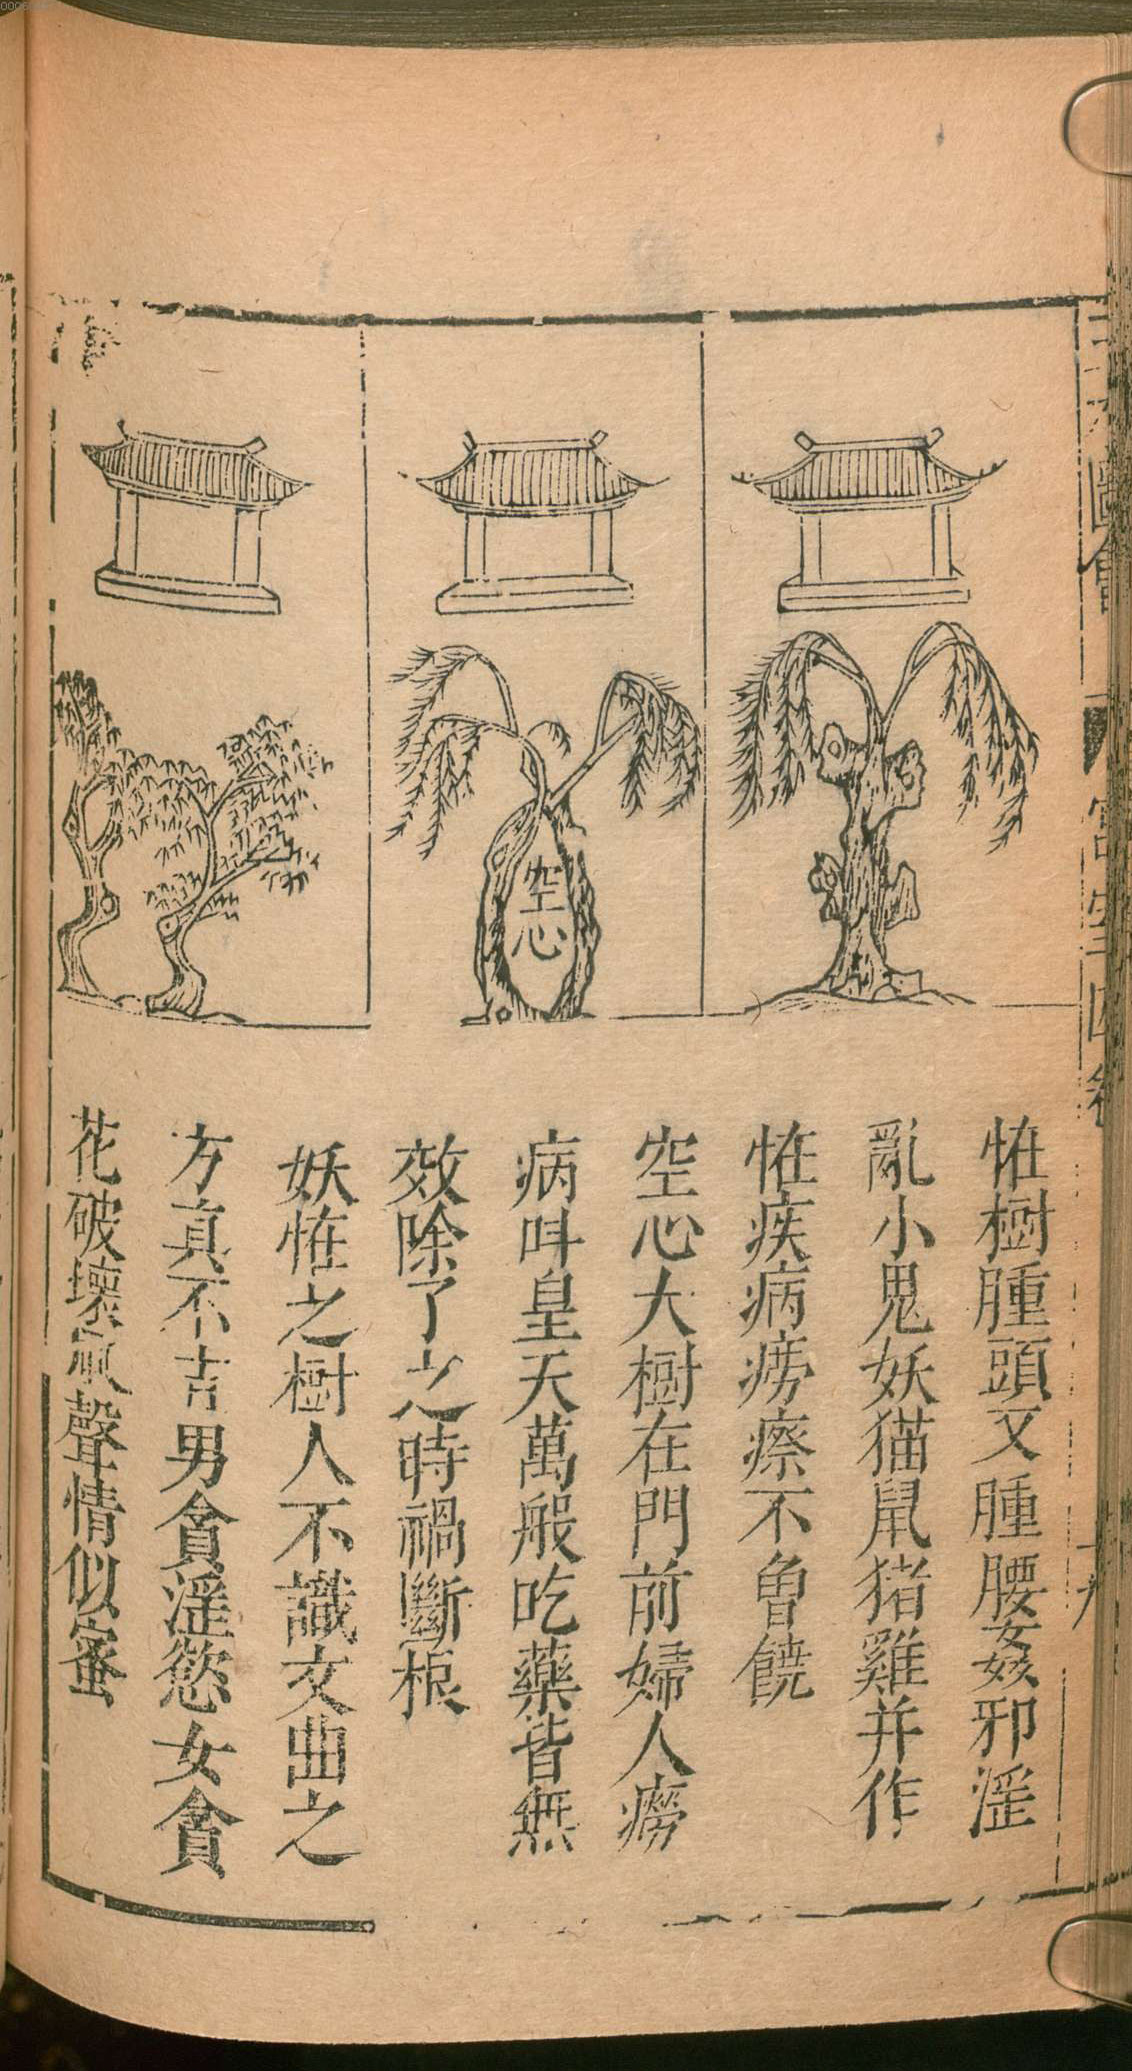 三才圖會
宮室四卷
空心
恠樹腫頭又腫腰姦邪淫
亂小鬼妖猫鼠猪雞并作
恠疾病痨瘵不曾饒
空心大樹在門前婦人癆
病呌皇天萬般吃藥皆無
效除了之時禍斷根
妖恠之樹人不識文曲之
方真不吉男貪淫慾女貪
花破壞風聲情似蜜